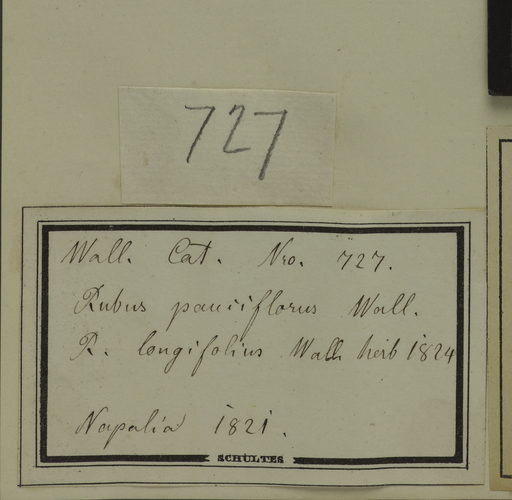 727
Wall. Cat. Nro. 727.
Rubus pauciflorus Wall.
R. longifolius Wall herb 1824
Napalia 1821.
SCHULTES